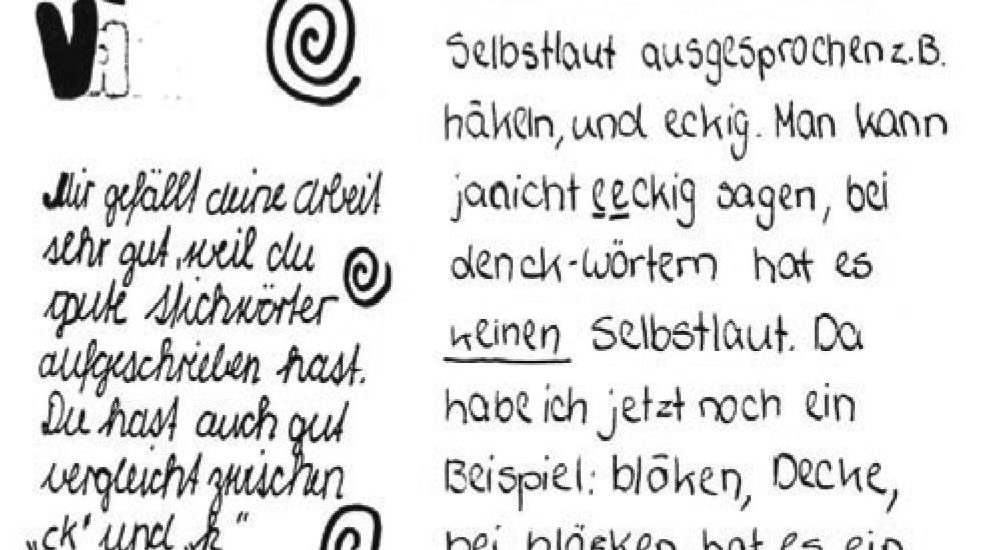 Mir gefällt deine Arbeit
sehr gut, weil du
gute Stichwörter
aufgeschrieben hast.
Du hast auch gut
vergleicht zwischen
„ck" und „k"
Selbstlaut ausgesprochen z.B.
häkeln, und eckig. Man kann
janicht eeckig sagen, bei
den ck-Wörtern hat es
keinen Selbstlaut. Da
habe ich jetzt noch ein
Beispiel: blöken, Decke,
bei blöcken hat es ein